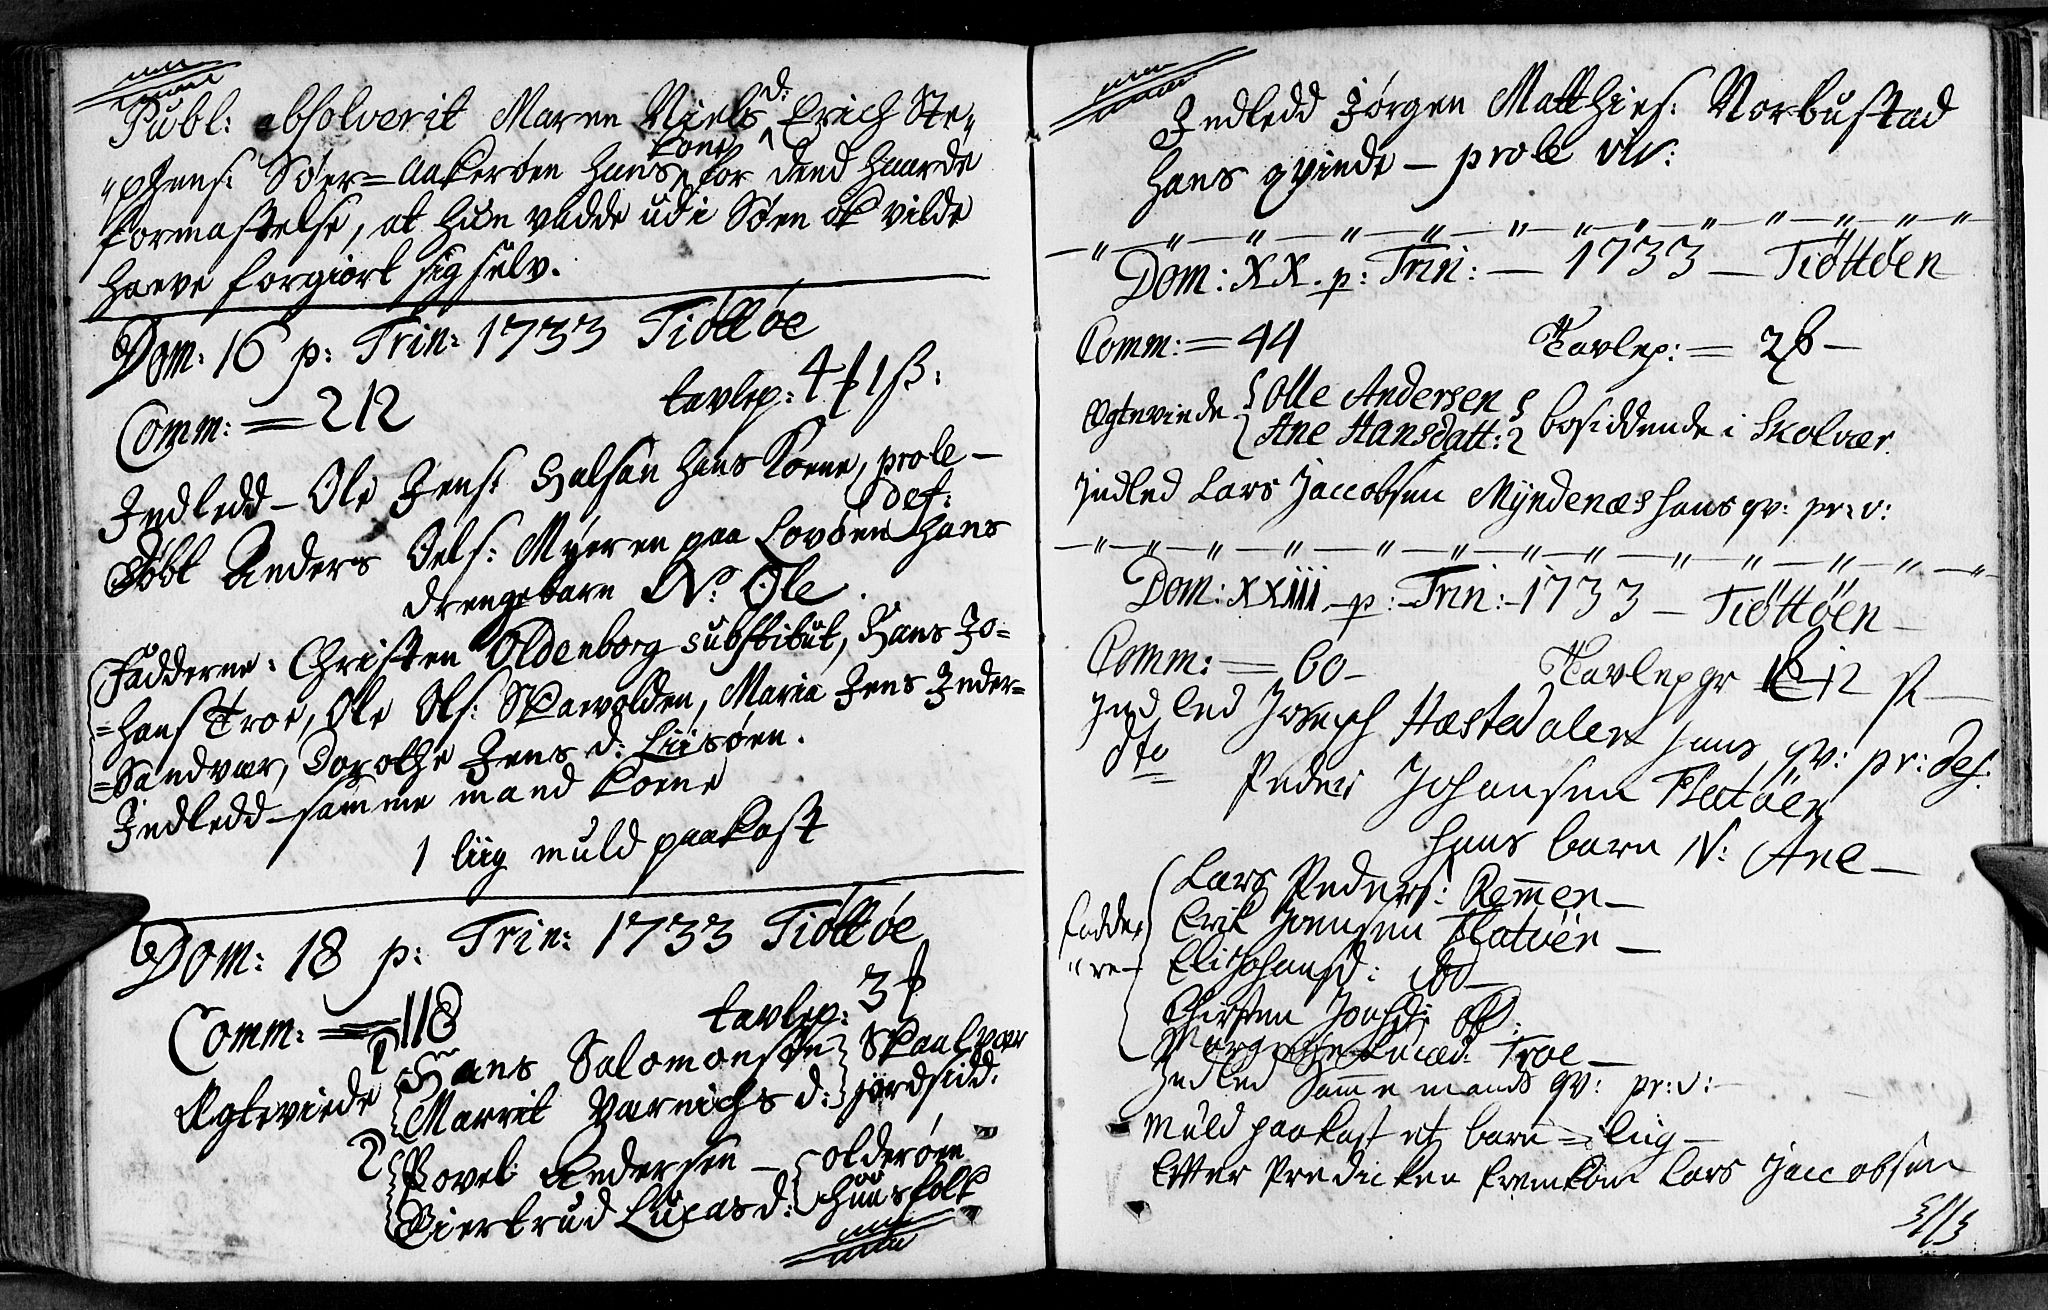 Publ: absolverit Maren Niels d: Erich Ste„
„phens: Søer=aakerøen hans kone for dend haarde
formastelse, at hun vadde udi Søen ok vilde
haeve forgiort sig selv.
Dom: 16 p: Trin: 1733 Tiøttøe
Comm: = 212 tavlep: 4 ℔ 1 ß:
Indledd – Ole Jens: Halsan hans Koene, prole –
def:
Døbt Anders Oels: Myeren paa Lovøen hans
drengebarn N: Ole.
Fadderne: Christen Oldenborg substitut, Hans Jo=
=hans Troe, Ole Ols: Skaevolden, Maria Jens Inder=
=Sandvær, Dorothe Jens d: Liisøen.
Indledd – samme mand koene
1 liig muld paakast
Dom: 18 p: Trin: 1733 Tiøttøe
Comm: = 118 tavlep: 3 ℔
Ægteviede 1 Hans Salomonsøn Skaalvær
Marrit Varnichs d: jordsidd.
2 Povel Andersen – olderøen
Giertrud Lucas d: huusfolk
Indledd Jørgen Matthies: Norbustad
hans qvinde – prole viv:
Dom: XX. p: Trin: – 1733 – Tiøttøen
Comm: = 44 Tavlep: = 2 ℔ –
Ægtevinde Olle Andersen
Ane Hansdatt: bosiddende i Skolvær.
Indled Lars Jaccobsen Myndenæs hans qv: pr: v:
Dom: XXiii. p: Trin: – 1733 – Tiøttøen –
Comm: = 60 – Tavlepgr 12 ß –
Indled Joseph Hæstedalen hans qv: pr: def:
dto Peder Johansen Flatøen
hans barn N: Ane –
Lars Peders: Remen –
fadder Erik Joensen Flatøen –
„re – Eli Johansd: ibd –
Chirsten Joensd: ib:
Margrethe Lucæd: Troe –
Indled Samme mands qv: pr: v: –
Muld paakast et barn = liig –
Efter Predicken fremkom Lars Jaccobsen